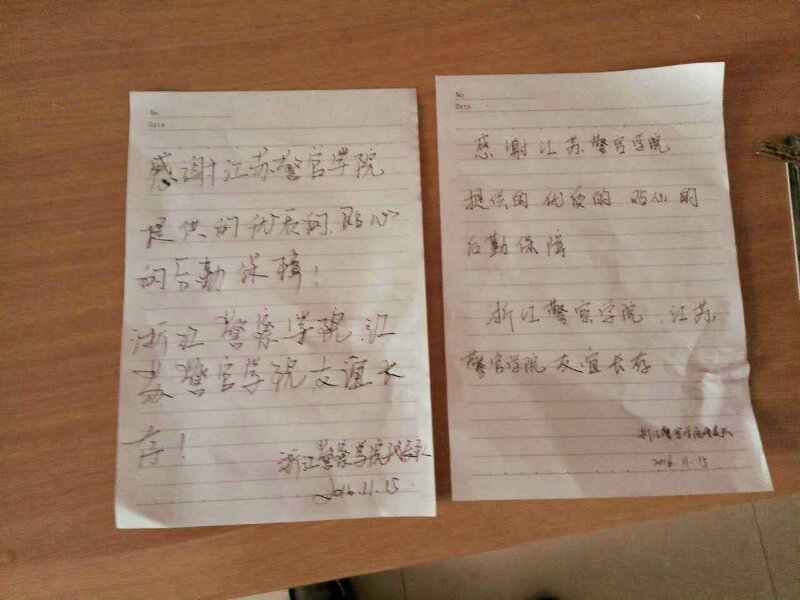 No
Date
感谢江苏警官学院
提供的优质的、贴心
的后勤保障!
浙江警察学院、江
苏警官学院友谊长
存!
浙江警察学院代表队
2016.11.15
No
Date
感谢江苏警官学院
提供的优质的 贴心的
后勤保障
浙江警察学院 江苏
警官学院友谊长存
浙江警察学院代表队
2016.11.15